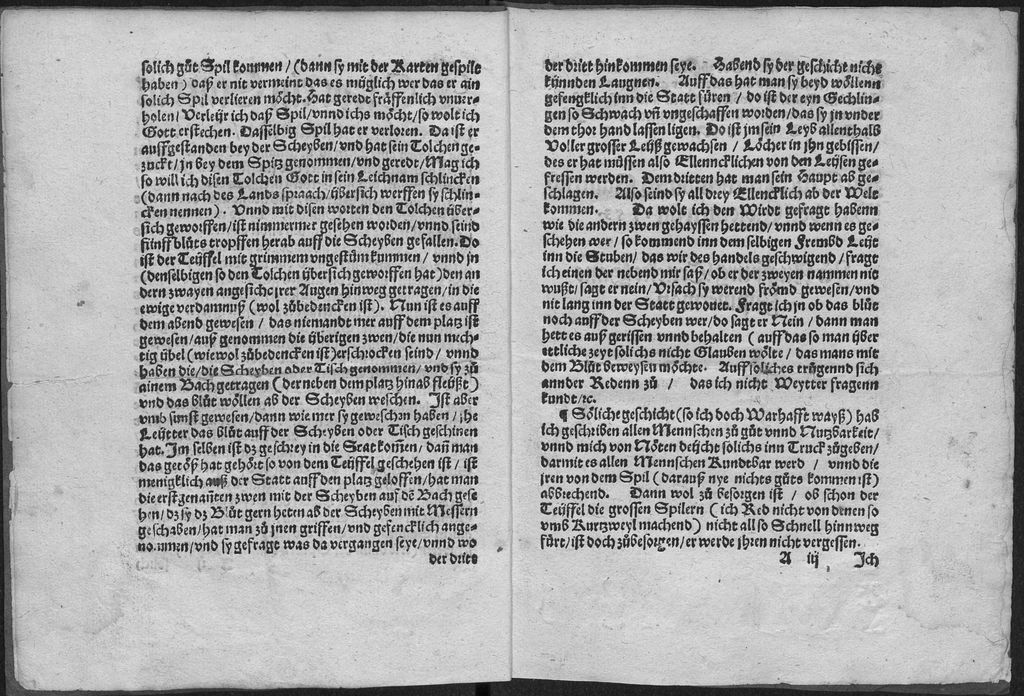 solich gůt Spil kommen / (dann sy mit der Karten gespilt
haben) daß er nit vermeint das es müglich wer das er ain
solich Spil verlieren möcht. Hat geredt fräffenlich vnuer-
holen / Verleür ich daß Spil / vnnd ichs möcht / so wolt ich
Gott erstechen. Dasselbig Spil hat er verloren. Da ist er
auffgestanden bey der Scheyben / vnd hat sein Tolchen ge-
zuckt / jn bey dem Spitz genommen / vnd geredt / Mag ich
so will ich disen Tolchen Gott in sein Leichnam schlincken
(dann nach des Lands spraach / übersich werffen sy schlin-
cken nennen). Vnnd mit disen worten den Tolchen über-
sich geworffen / ist nimmermer gesehen worden / vnnd seind
fünff blůts tropffen herab auff die Scheyben gefallen. Do
ist der Teüffel mit grimmem vngestüm kummen / vnnd jn
(denselbigen so den Tolchen übersich geworffen hat) den an
dern zwayen angesicht jrer Augen hinweg getragen / in die
ewige verdamnuß (wol zůbedencken ist). Nun ist es auff
dem abend gewesen / das niemandt mer auff dem platz ist
gewesen / auß genommen die überigen zwen / die nun mech-
tig übel (wiewol zůbedencken ist) erschrocken seind / vnnd
haben die / die Scheyben oder Tisch genommen / vnd sy zů
ainem Bach getragen (der neben dem platz hinab fleüßt)
vnd das blůt wöllen ab der Scheyben weschen. Ist aber
vmb sunst gewesen / dann wie mer sy geweschen haben / jhe
Leütter das blůt auff der Scheyben oder Tisch geschinen
hat. Im selben ist dz geschrey in die Stat kom̄en / dañ man
das getöß hat gehört so von dem Teüffel geschehen ist / ist
menigklich auß der Statt auff den platz geloffen / hat man
die erstgenañten zwen mit der Scheyben auf dē Bach gese
hen / dz sy dz Blůt gern heten ab der Scheyben mit Messern
geschaben / hat man zů jnen griffen / vnd gefencklich ange-
nommen / vnd sy gefragt was da vergangen seye / vnnd wo
der dritt
der dritt hinkommen seye. Habend sy der geschicht nicht
künnden Laugnen. Auff das hat man sy beyd wöllenn
gefengklich inn die Statt füren / do ist der eyn Gechlin-
gen so Schwach vñ vngeschaffen worden / das sy jn vnder
dem thor hand lassen ligen. Do ist jm sein Leyb allenthalb
Voller grosser Leüß gewachsen / Löcher in jhn gebissen /
des er hat müssen also Ellencklichen von den Leüsen ge-
fressen werden. Dem dritten hat man sein Haupt ab ge-
schlagen. Also seind sy all drey Ellencklich ab der Welt
kommen. Da wolt ich den Wirdt gefragt habenn
wie die andern zwen gehayssen hettend / vnnd wenn es ge-
schehen wer / so kommend inn dem selbigen Frembd Leüt
inn die Stuben / das wir des handels geschwigend / fragt
ich einen der nebend mir saß / ob er der zweyen nammen nit
wußt / sagt er nein / Vrsach sy werend frömd gewesen / vnd
nit lang inn der Statt gewonet. Fragt ich jn ob das blůt
noch auff der Scheyben wer / do sagt er Nein / dann man
hett es auß gerissen vnnd behalten (auff das so man über
ettliche zeyt solichs nicht Glauben wölte / das mans mit
dem Blůt beweysen möchte. Auff soliches trügennd sich
annder Redenn zů / das ich nicht Weytter fragenn
kundt / ꝛc.
¶ Söliche geschicht (so ich doch Warhafft wayß) hab
ich geschriben allen Mennschen zů gůt vnnd Nutzbarkeit /
vnnd mich von Nöten deücht solichs inn Truck zůgeben /
darmit es allen Mennschen Kundtbar werd / vnnd die
jren von dem Spil (darauß nye nichts gůts kommen ist)
abbrechend. Dann wol zů besorgen ist / ob schon der
Teüffel die grossen Spilern (ich Red nicht von denen so
vmb Kurtzweyl machend) nicht all so Schnell hinnweg
fürt / ist doch zůbesorgen / er werde jhren nicht vergessen.
A iij Ich